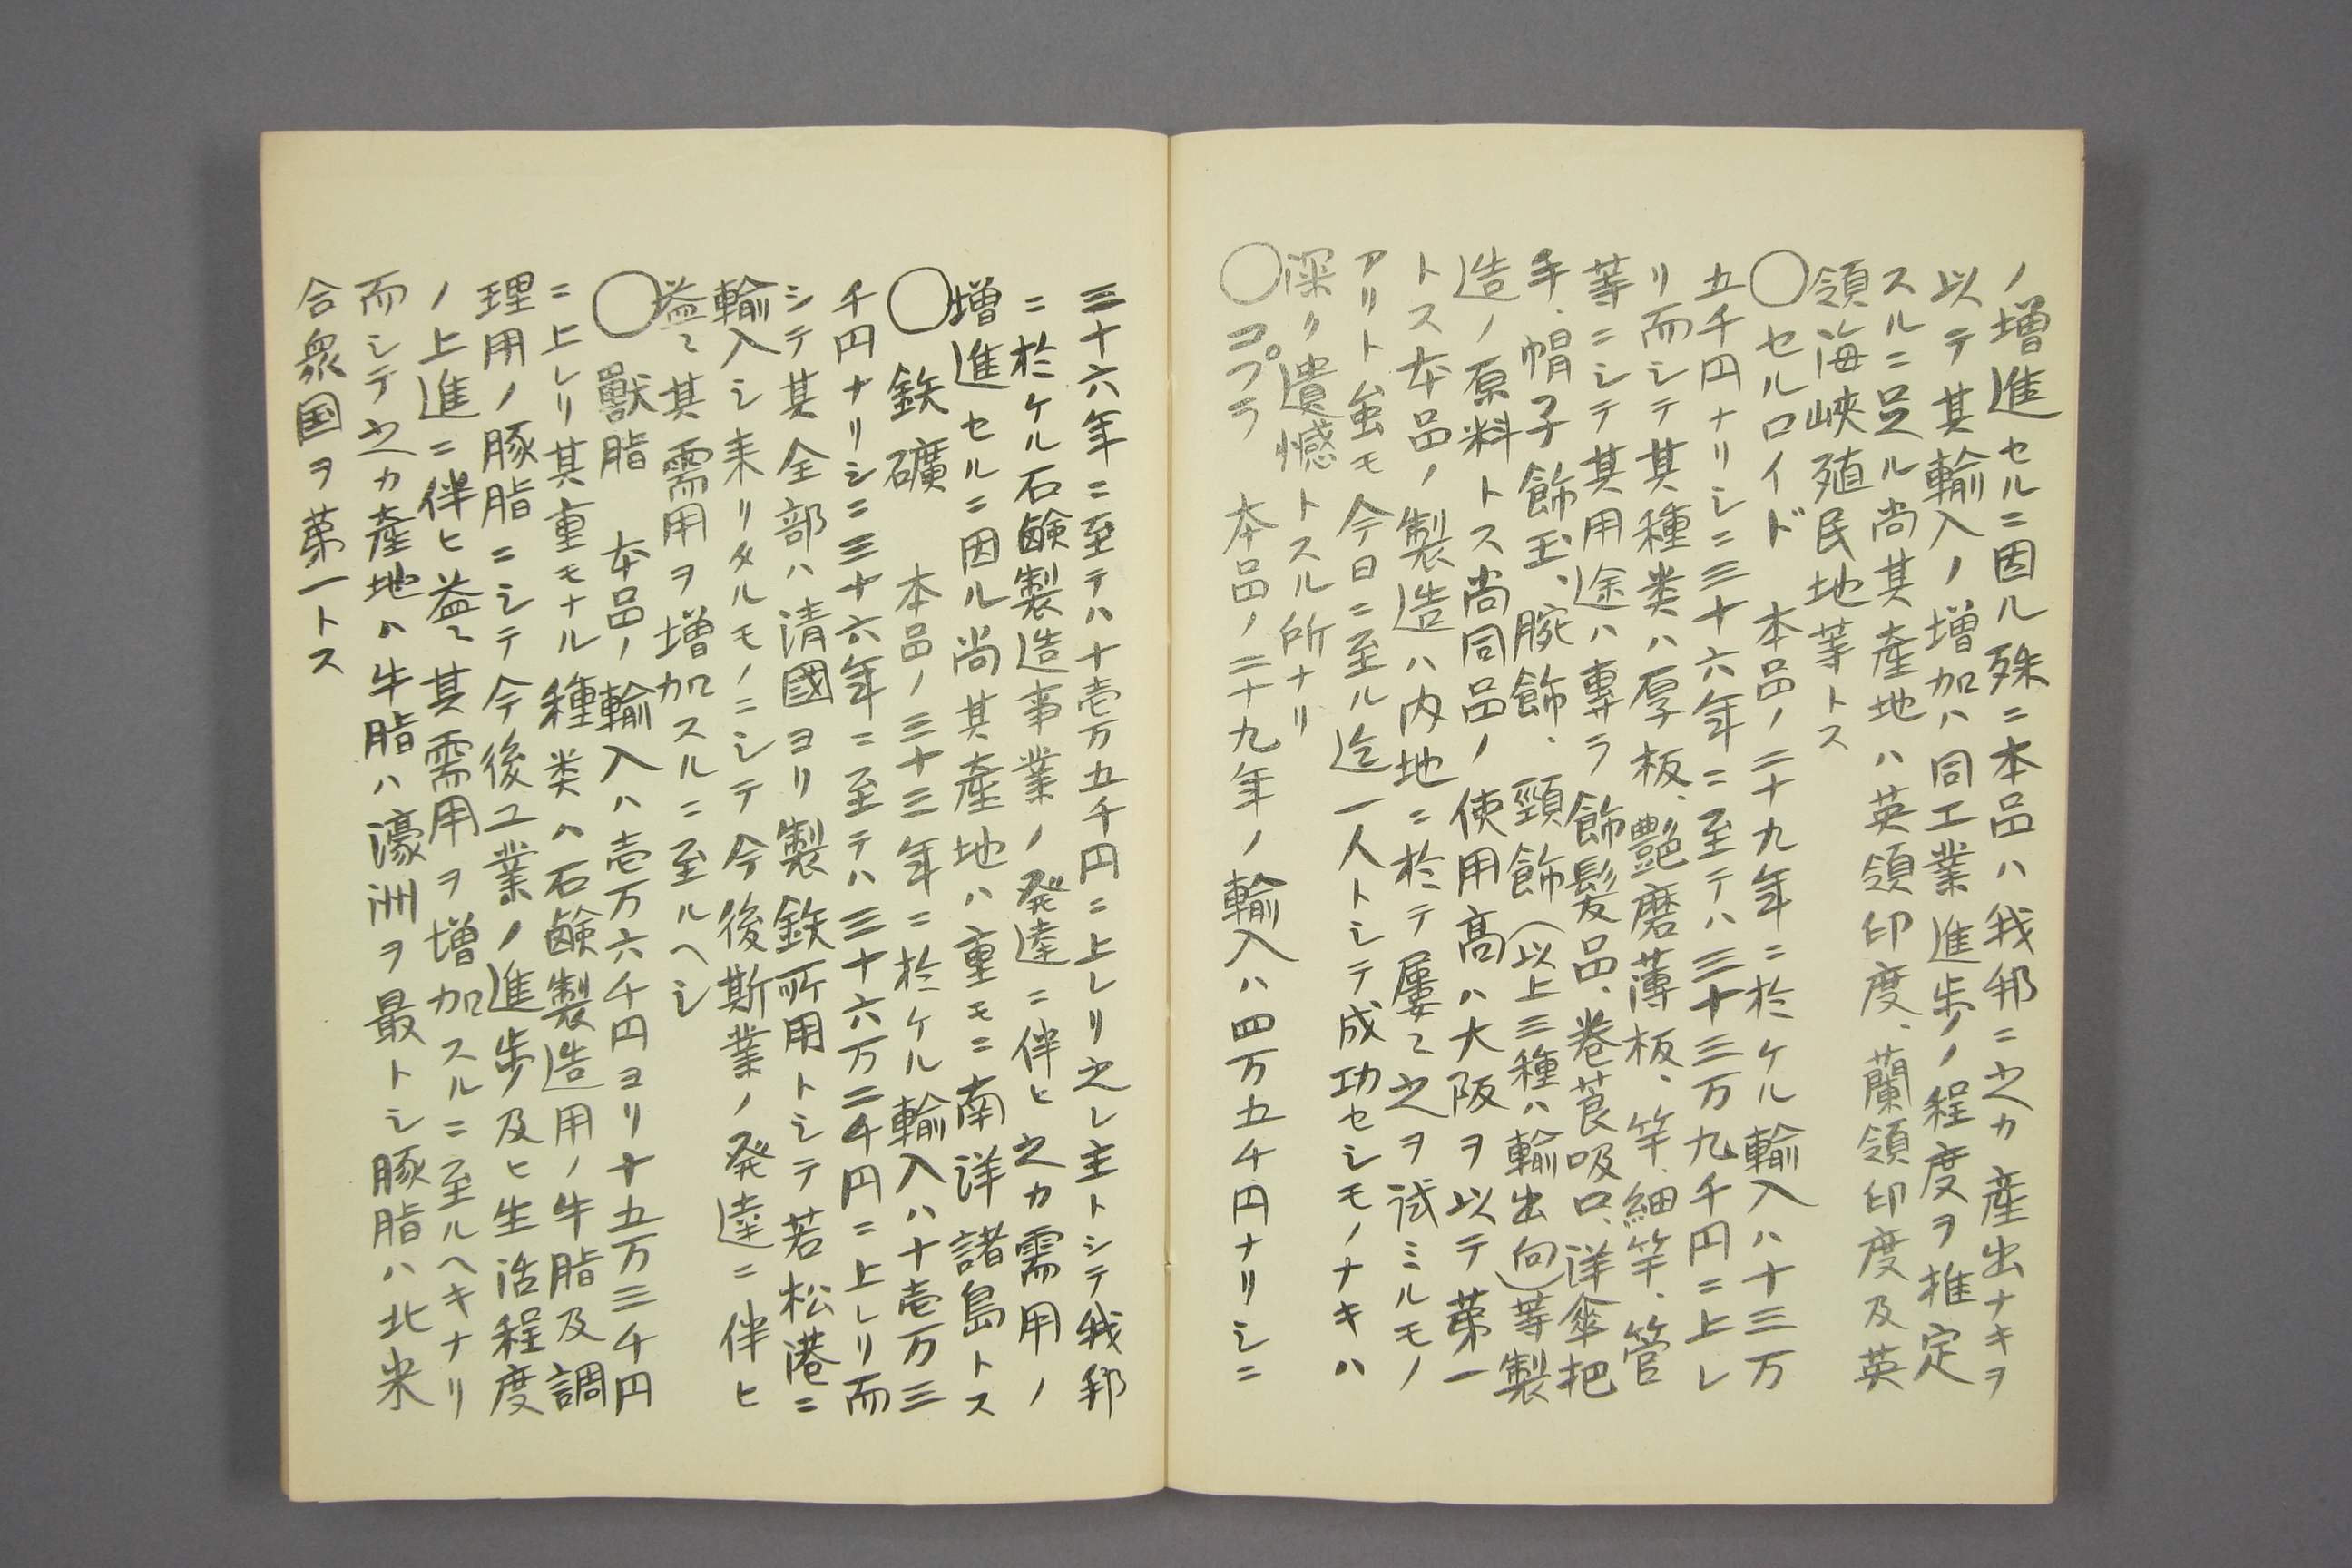 ノ増進セルニ因ル殊ニ本品ハ我邦ニ之カ産出ナキヲ
以テ其輸入ノ増加ハ同工業進歩ノ程度ヲ推定
スルニ足ル尚其産地ハ英領印度、蘭領印度及英
領海峡殖民地等トス
〇セルロイド　本品ノ二十九年ニ於ケル輸入ハ十三万
五千円ナリシニ三十六年ニ至テハ三十三万九千円ニ上レ
リ而シテ其種类ハ厚板、艶磨薄板、竿、細竿、管
等ニシテ其用途ハ専ラ飾髪品、巻莨吸口、洋傘把
手、帽子飾玉、腕飾、頸飾（以上三種ハ輸出向）等製
造ノ原料トス尚同品ノ使用高ハ大阪ヲ以テ第一
トス本品ノ製造ハ内地ニ於テ屢〻之ヲ試ミルモノ
アリト虽モ今日ニ至ル迄一人トシテ成功セシモノナキハ
深ク遺憾トスル所ナリ
〇コプラ　本品ノ二十九年ノ輸入ハ四万五千円ナリシニ
三十六年ニ至テハ十壱万五千円ニ上レリ之レ主トシテ我邦
ニ於ケル石鹸製造事業ノ発達ニ伴ヒ之カ需用ノ
増進セルニ因ル尚其産地ハ重モニ南洋諸島トス
〇鉄礦　本品ノ三十三年ニ於ケル輸入ハ十壱万三
千円ナリシニ三十六年ニ至テハ三十六万二千円ニ上レリ而
シテ其全部ハ清國ヨリ製鉄所用トシテ若松港ニ
輸入シ来リタルモノニシテ今後斯業ノ発達ニ伴ヒ
益〻其需用ヲ増加スルニ至ルヘシ
〇獸脂　本品ノ輸入ハ壱万六千円ヨリ十五万三千円
ニ上レリ其重モナル種类ハ石鹸製造用ノ牛脂及調
理用ノ豚脂ニシテ今後工業ノ進歩及ヒ生活程度
ノ上進ニ伴ヒ益〻其需用ヲ増加スルニ至ルヘキナリ
而シテ之カ産地ハ牛脂ハ濠洲ヲ最トシ豚脂ハ北米
合衆国ヲ第一トス